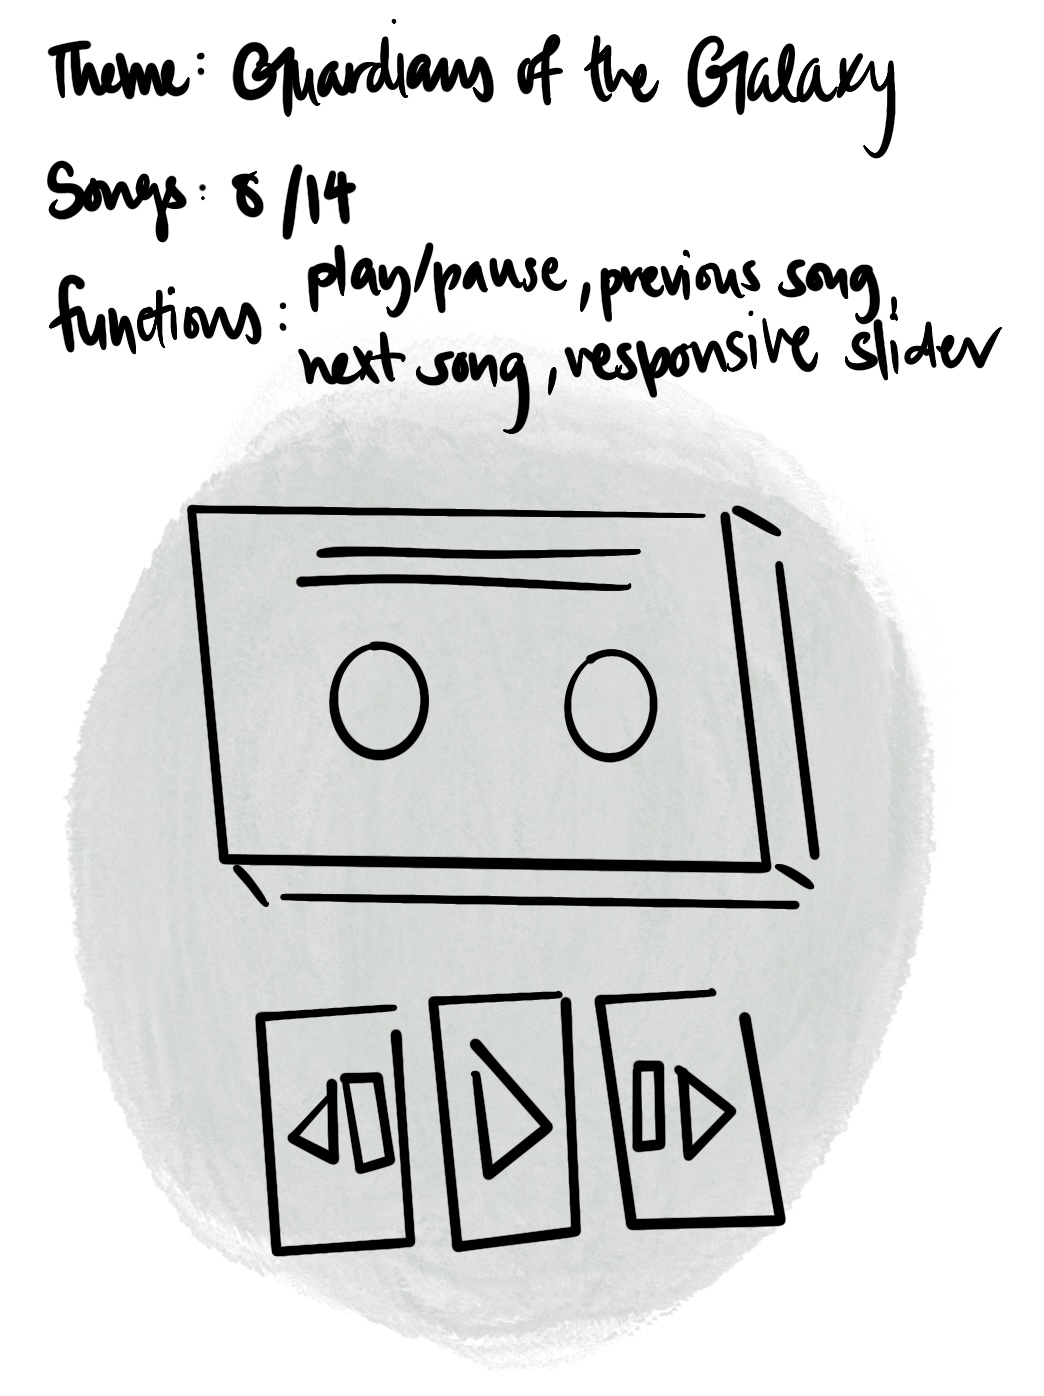 Theme: Guardians of the Galaxy
Songs: 8/14
functions: play/pause, previous song,
next song, responsive slider